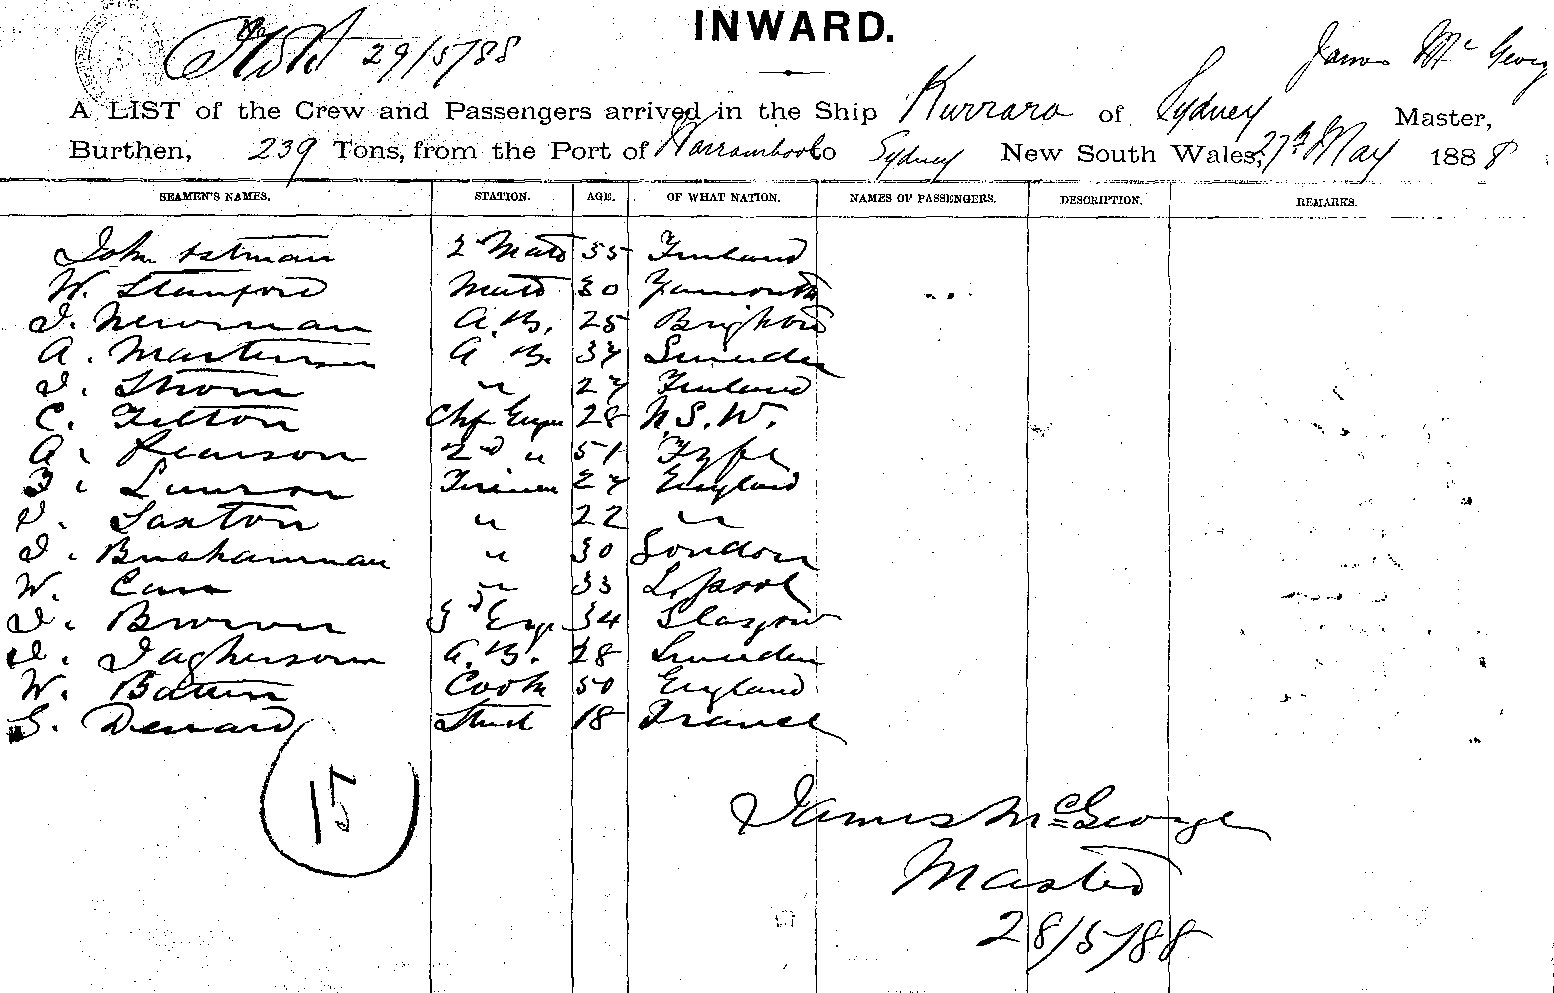 INWARD.
29/5/88
James Mc Georg
A LIST of the Crew and Passengers arrived in the Ship Kurrara of Sydney Master,
Burthen, 239 Tons, from the Port of to Sydney New South Wales, 27th May 1888
SEAMEN'S NAMES. STATION. AGE. OF WHAT NATION. NAMES OF PASSENGERS. DESCRIPTION. REMARKS.
John 2 Mate 35 Finland
W. Stanford Mate 30 Yarmouth
J. Newman A.B. 25 Brighton
A. A B. 37 Sweden
J. Strom " 27 Finland
C. Felton Chf 28 N.S.W.
A. Pearson 2nd " 51 Fyfe
Firemen 27 England
J. Saxton " 22 "
J. " 30 London
W. Carr " 33 L.pool
J. Brown 3d Eng. 34 Glasgow
J. A.B. 28 Sweden
W. Batten Cook 50 England
G. 18 France
15
James McGeorge
Master
28/5/88